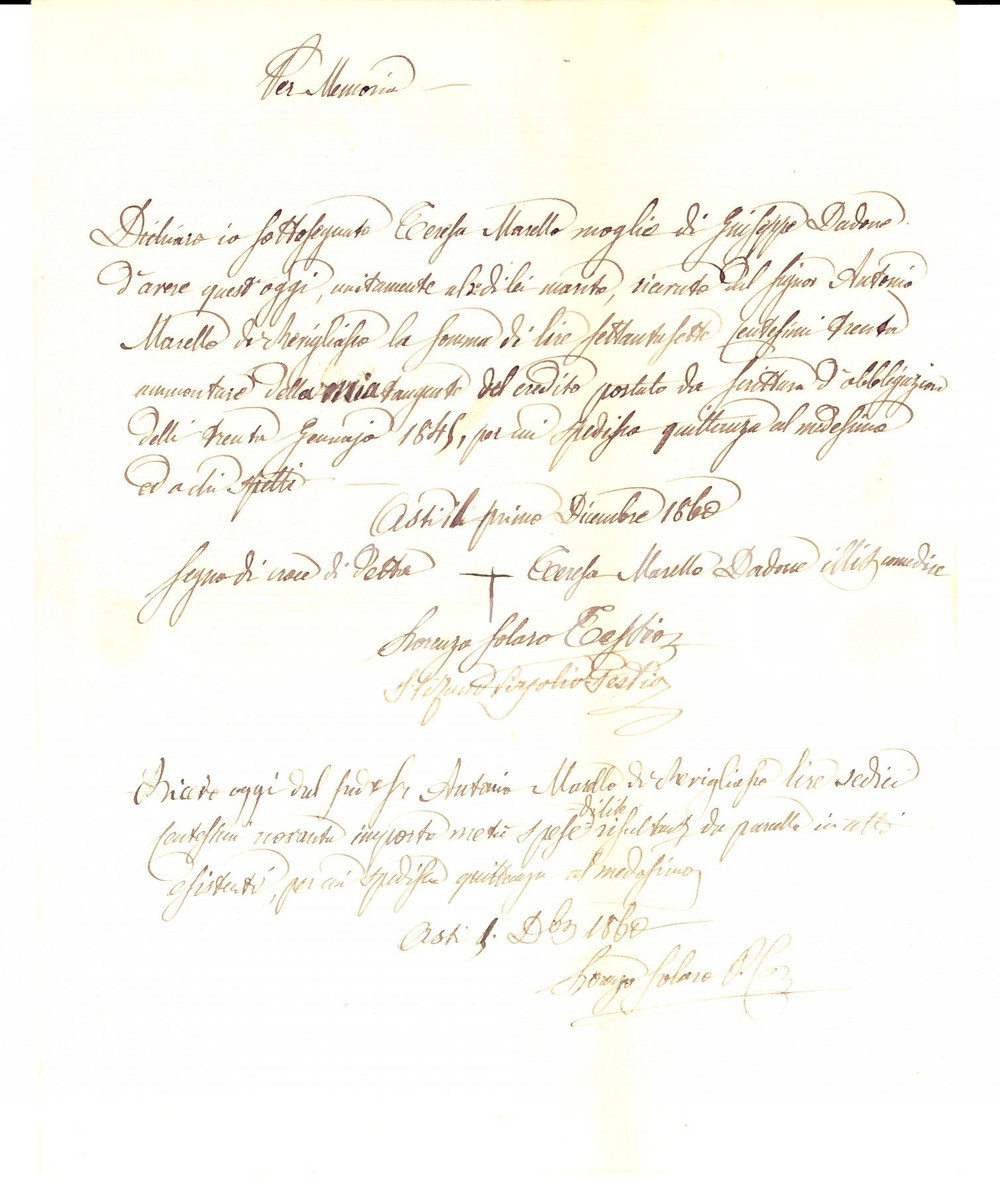 Per Memoria
Dichiaro io sottosegnata Teresa Marello moglie di Giuseppe Dadone
d'avere quest'oggi, unitamente al di lei marito, ricevuto dal signor Antonio
Marello di Revigliasco la somma di lire settantasette Centesimi trenta
ammontare della mia tangente del credito portato da scrittura d'obbligazione
delli trenta Gennajo 1845, per cui spedisco quittanza al medesimo
ed a chi spetti
Asti il primo Dicembre 1860
Segno di croce di detta Teresa Marello Dadone
Lorenzo Solaro Testio
Testio
Ricevo oggi dal Antonio Marello di Revigliasco lire sedici
Centesimi novanta importo metà spese di lite risultanti da parcella in atti
esistenti, per cui spedisco quittanza al medesimo
Asti 1. Dbre 1860
Lorenzo Solaro